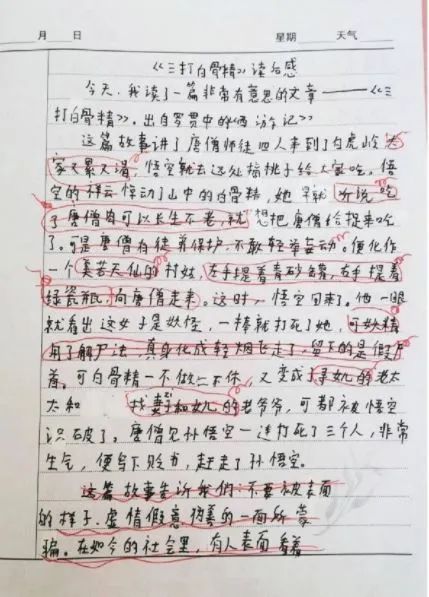 月 日 星期 天气
《三打白骨精》读后感
今天,我读了一篇非常有意思的文章——《三
打白骨精》。出自罗贯中的《西游记》
这篇故事讲了唐僧师徒四人来到了白虎岭 大
家又累又渴,悟空就去远处摘桃子给大家吃。悟
空的祥云惊动了山中的白骨精,她早就听说吃
了唐僧肉可以长生不老,就想把唐僧给捉来吃
了。可是唐僧有徒弟保护,不敢轻举妄动。便化作
一个美若天仙的村姑,左手提着青砂罐,右手提着
绿瓷瓶,向唐僧走来。这时,悟空回来了。他一眼
就看出这女子是妖怪,一棒就打死了她,可妖精
用了解尸法,真身化成轻烟飞走了,留下的是假尸
首。可白骨精一不做二不休,又变成了寻女儿的老太
太和 找妻子和女儿的老爷爷,可都被悟空
识破了。唐僧见孙悟空一连打死了三个人,非常
生气,便写下贬书,赶走了孙悟空。
这篇故事告诉我们:不要被表面
的样子、虚情假意伪善的一面所蒙
骗。在如今的社会里,有人表面看着